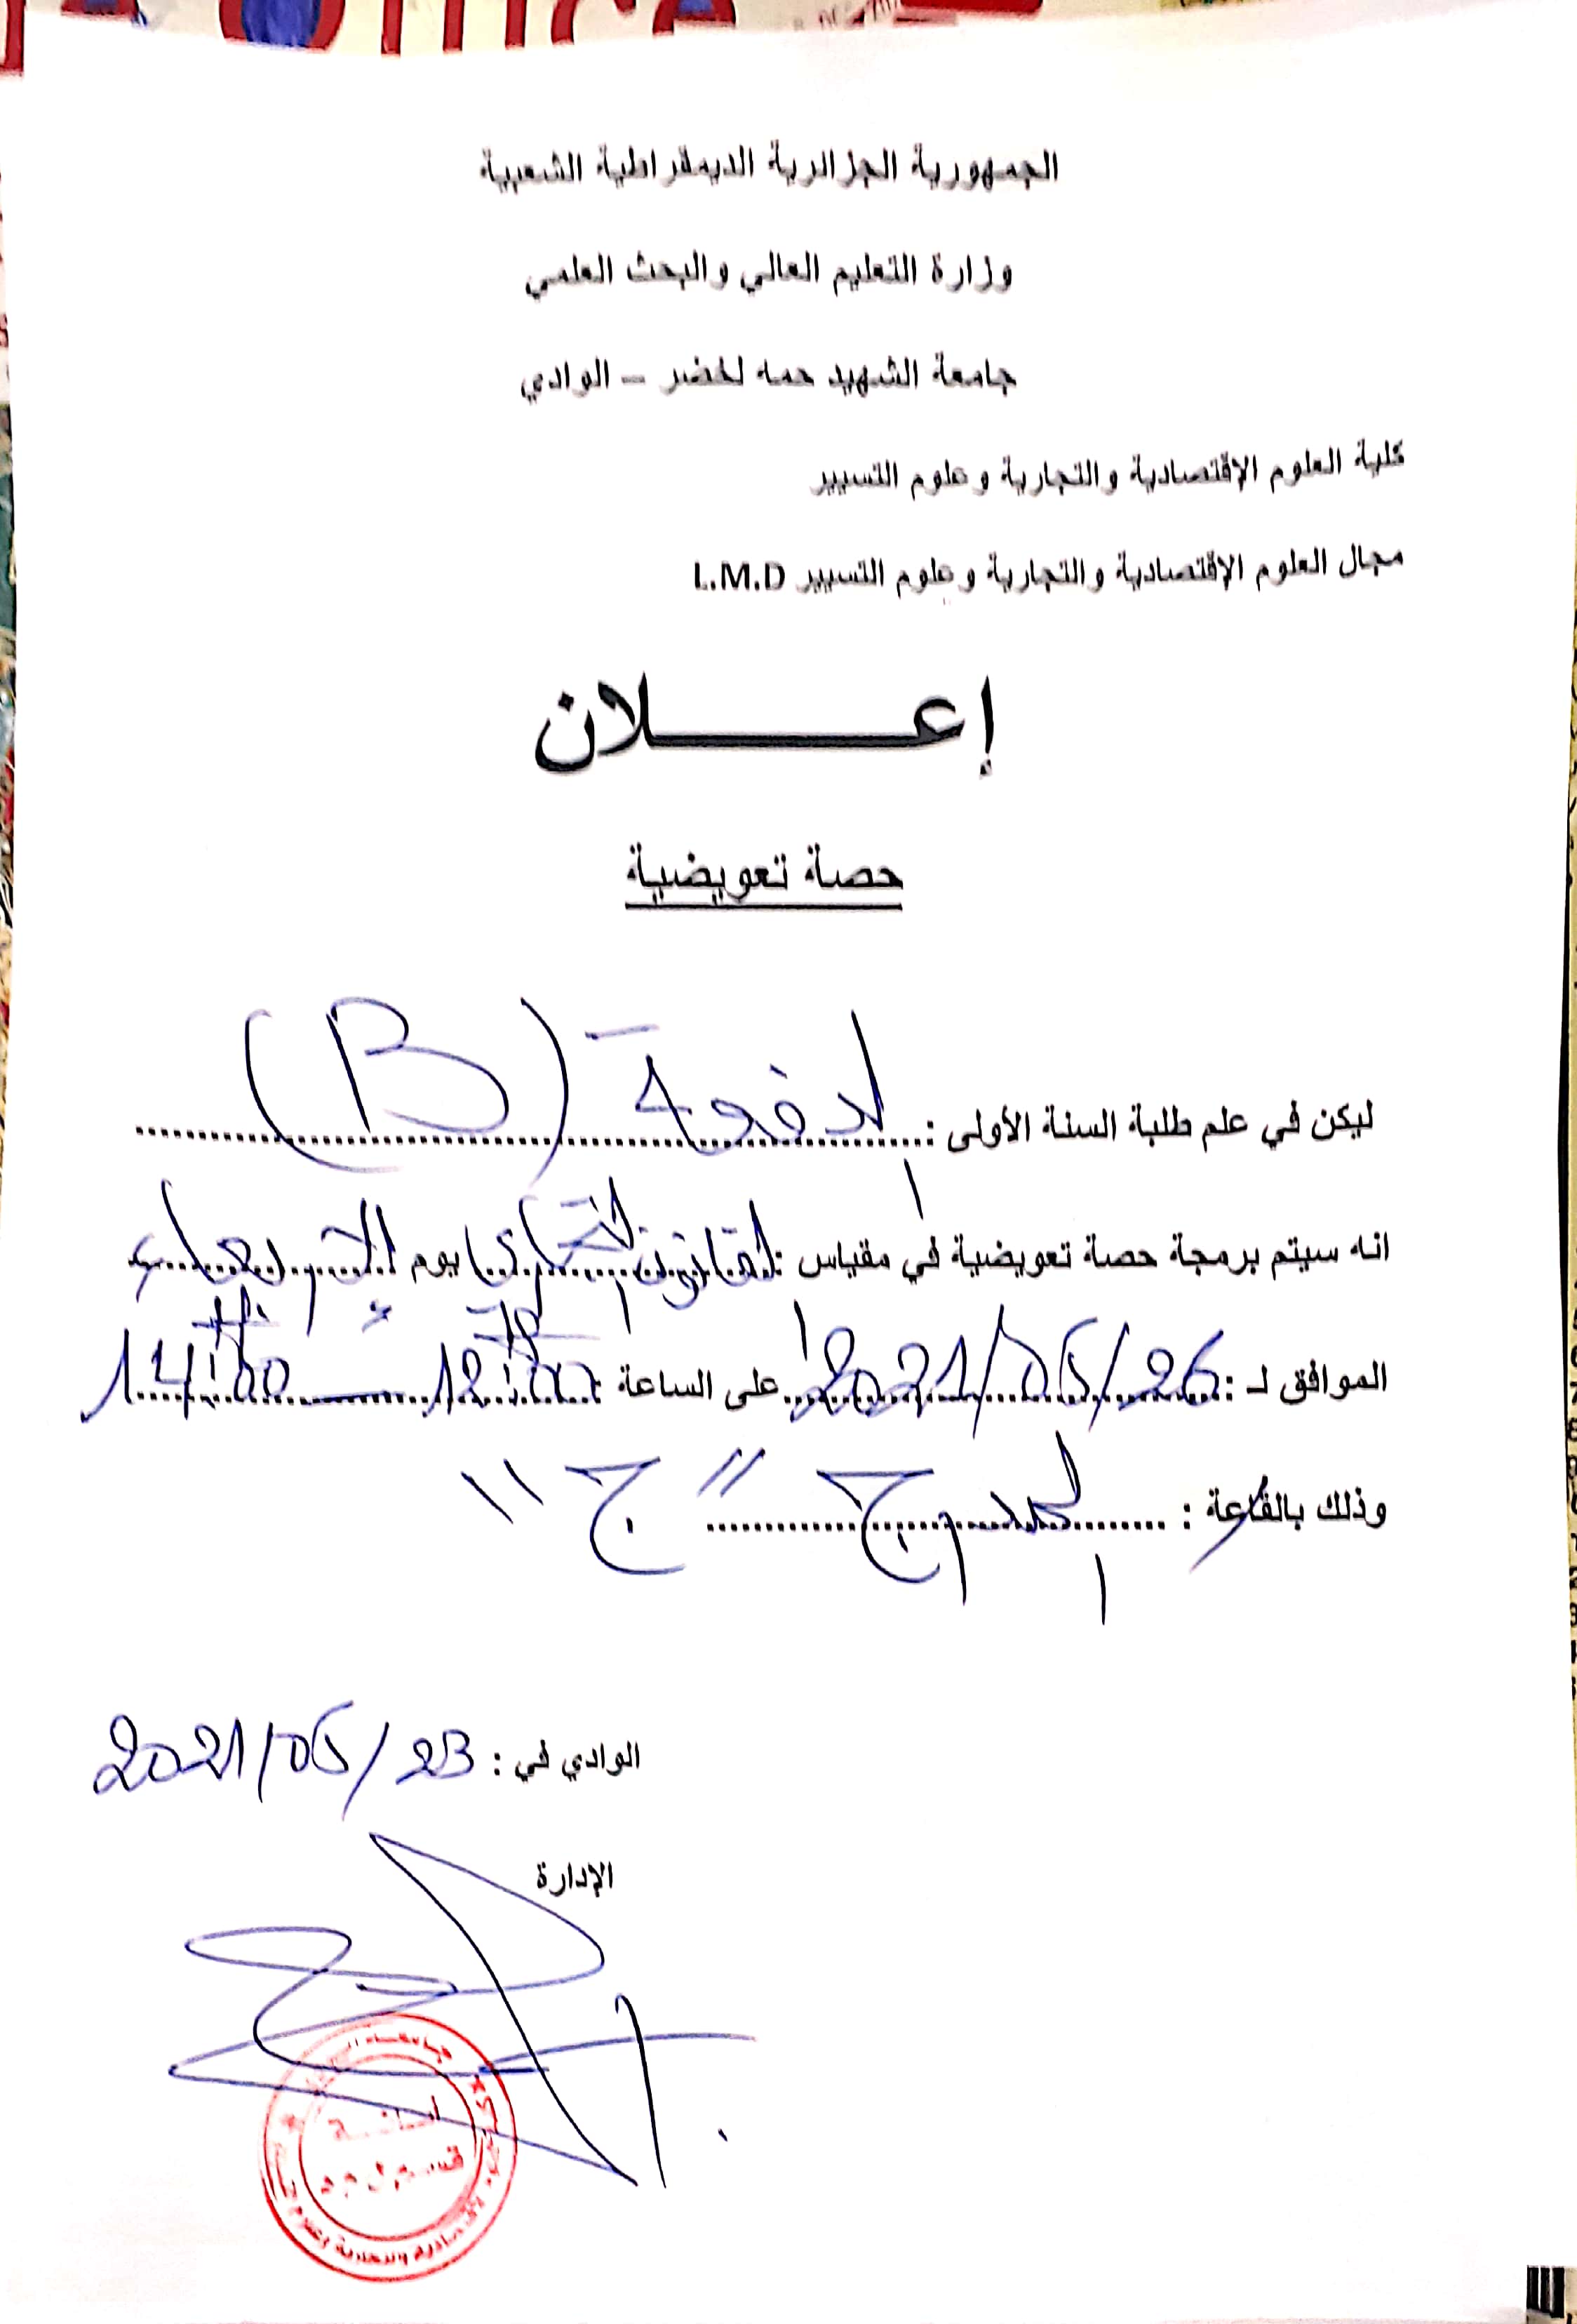 الجمهورية الجزائرية الديمقراطية الشعبية
وزارة التعليم العالي والبحث العلمي
جامعة الشهيد حمه لخضر – الوادي
كلية العلوم الإقتصادية والتجارية وعلوم التسيير
مجال العلوم الإقتصادية والتجارية وعلوم التسيير L.M.D
إعـــــلان
حصة تعويضية
ليكن في علم طلبة السنة الأولى : الدفعة (B)
انه سيتم برمجة حصة تعويضية في مقياس : القانون التجاري يوم الأربعاء
الموافق لـ : 2021/05/26 على الساعة : 12:00 — 14:00
وذلك بالقاعة : المدرج "ج"
الوادي في : 2021/05/23
الإدارة